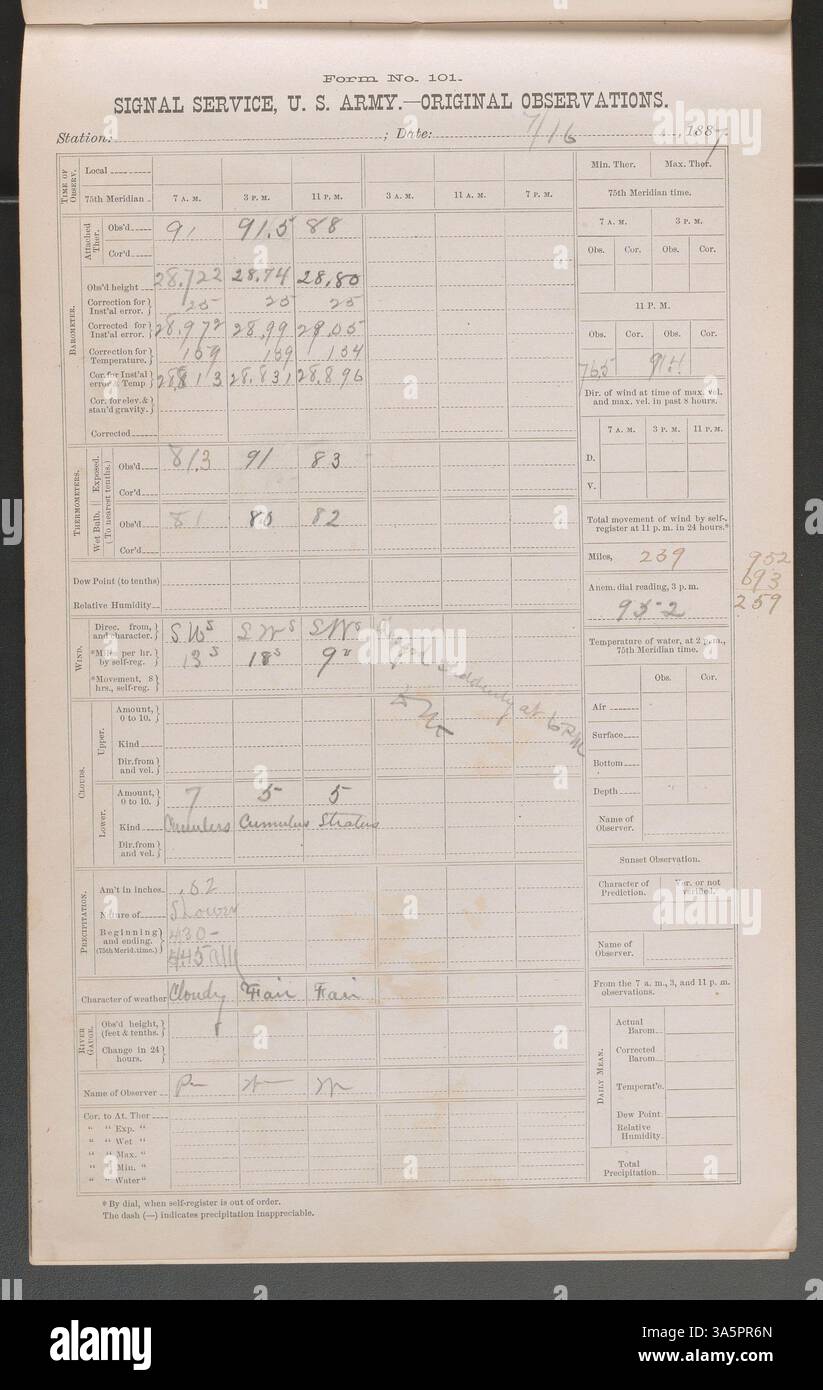 Form No. 101.
SIGNAL SERVICE, U. S. ARMY.—ORIGINAL OBSERVATIONS.
Station: ; Date: 7/16 , 1887.
TIME OF OBSERV.
Local
75th Meridian 7 A. M. 3 P. M. 11 P. M. 3 A. M. 11 A. M. 7 P. M.
BAROMETER.
Attached Ther.
Obs'd 91 91.5 88
Cor'd
Obs'd height 28.722 28.74 28.80
Correction for Inst'al error. 25 25 25
Corrected for Inst'al error. 28.972 28.99 29.05
Correction for Temperature. 159 159 154
Cor. for Inst'al error & Temp 28.813 28.831 28.896
Cor. for elev. & stan'd gravity.
Corrected
THERMOMETERS.
(To nearest tenths.)
Exposed.
Obs'd 81.3 91 83
Cor'd
Wet Bulb.
Obs'd 81 80 82
Cor'd
Dew Point (to tenths)
Relative Humidity
WIND.
Direc. from, and character. SWs SWs SWs
*Mile per hr. by self-reg. 13s 18s 9
*Movement, 8 hrs., self-reg.
suddenly at 6 PM
CLOUDS.
Upper.
Amount, 0 to 10.
Kind
Dir. from and vel.
Lower.
Amount, 0 to 10. 7 5 5
Kind Cumulus Cumulus Stratus
Dir. from and vel.
PRECIPITATION.
Am't in inches. .62
Nature of Shower
Beginning and ending. (75th Merid. time.) 430-
445
Character of weather Cloudy Fair Fair
RIVER GAUGE.
Obs'd height, (feet & tenths.
Change in 24 hours.
Name of Observer
Cor. to At. Ther
" " Exp. "
" " Wet "
" " Max. "
" " Min. "
" " Water"
* By dial, when self-register is out of order.
The dash (—) indicates precipitation inappreciable.
Min. Ther. Max. Ther.
75th Meridian time.
7 A. M. 3 P. M.
Obs. Cor. Obs. Cor.
11 P. M.
Obs. Cor. Obs. Cor.
76.5 91.4
Dir. of wind at time of max. vel. and max. vel. in past 8 hours.
7 A. M. 3 P. M. 11 P. M.
D.
V.
Total movement of wind by self-register at 11 p. m. in 24 hours.*
Miles, 259
952
693
259
Anem. dial reading, 3 p.m.
952
Temperature of water, at 2 p.m., 75th Meridian time.
Obs. Cor.
Air
Surface
Bottom
Depth
Name of Observer.
Sunset Observation.
Character of Prediction. Ver. or not verified.
Name of Observer.
From the 7 a. m., 3, and 11 p. m. observations.
DAILY MEAN.
Actual Barom.
Corrected Barom.
Temperat'e.
Dew Point
Relative Humidity
Total Precipitation
alamy
a
3A5PR6N
www.alamy.com